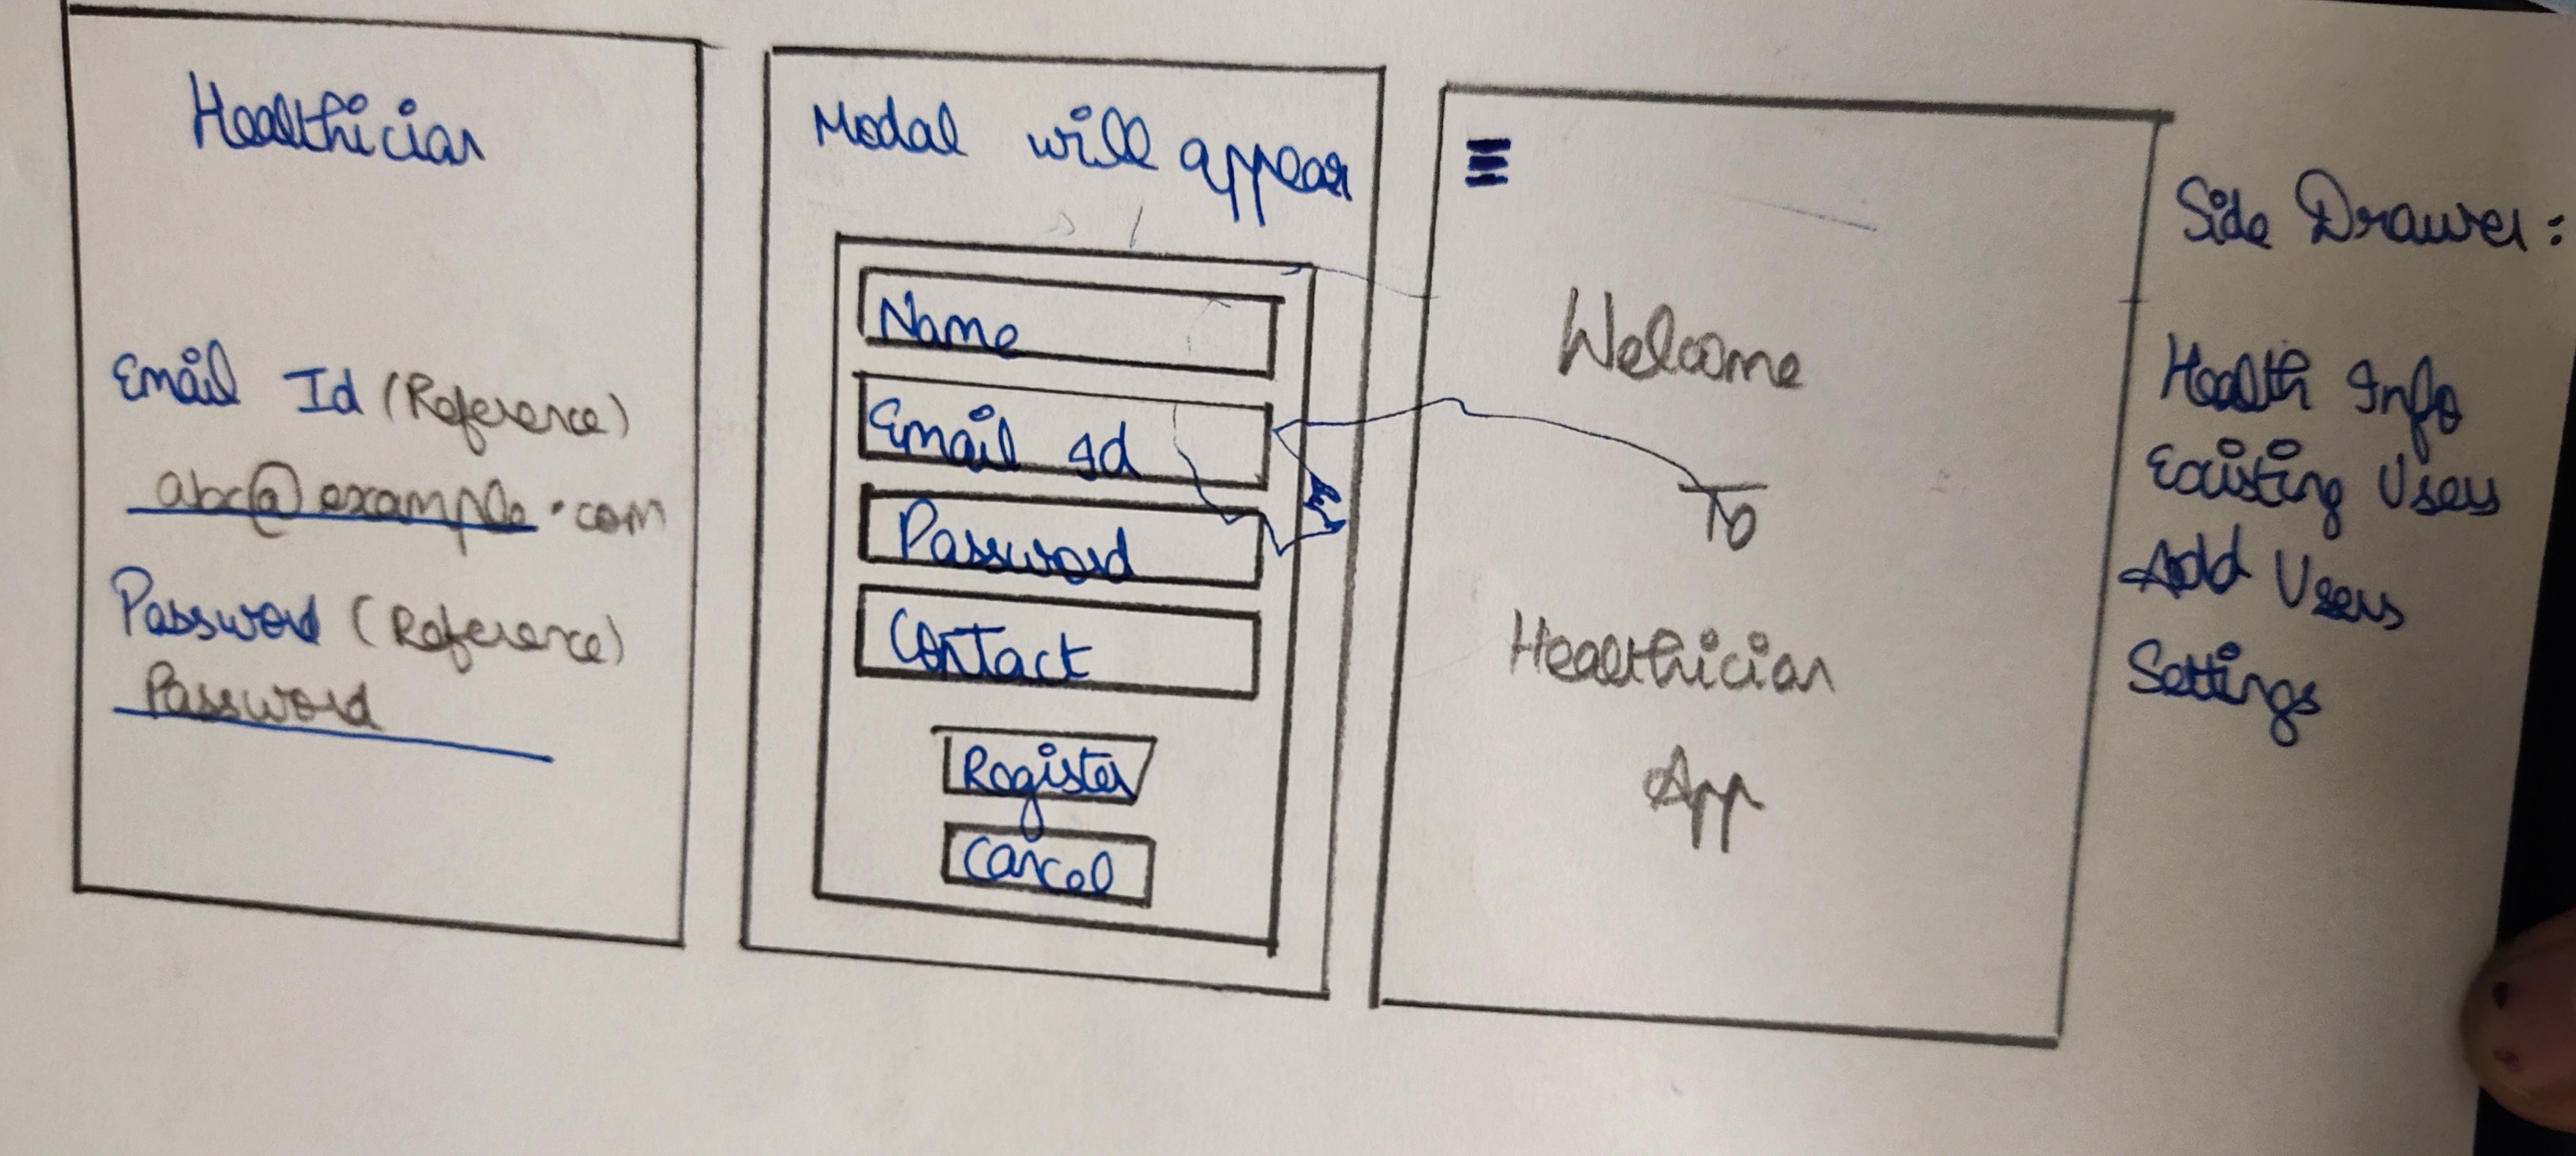 Healthician
Email Id (Reference)
abc@example.com
Password (Reference)
Password
Modal will appear
Name
Email Id
Password
Contact
Register
Cancel
Welcome
To
Healthician
App
Side Drawer:
Health Info
Existing Users
Add Users
Settings